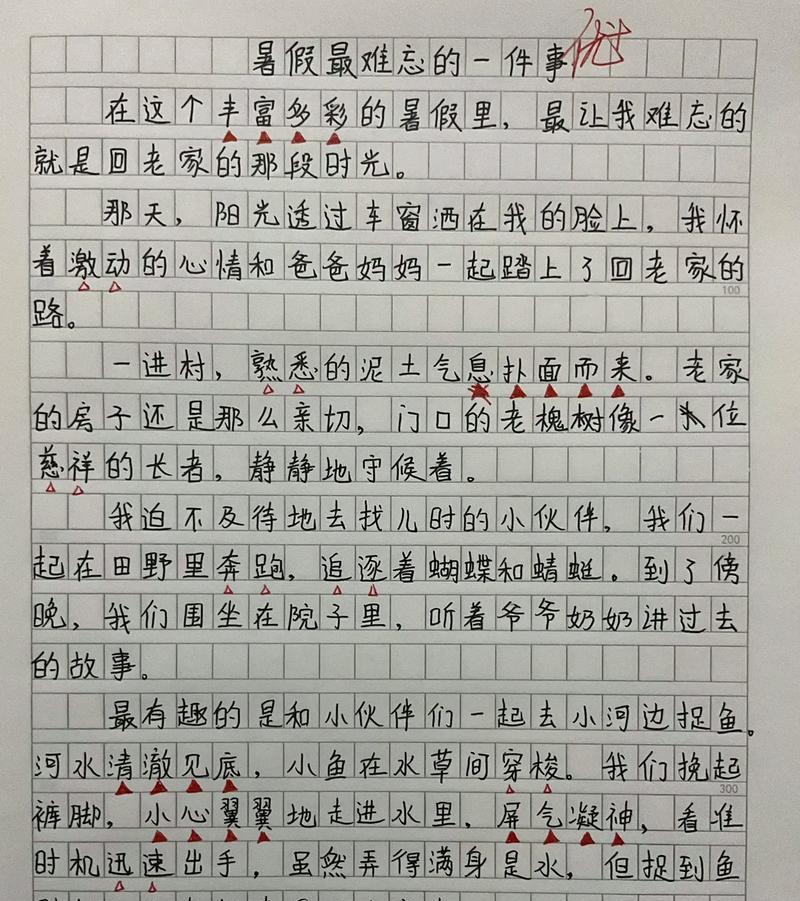 暑假最难忘的一件事 优
在这个丰富多彩的暑假里，最让我难忘的
就是回老家的那段时光。
那天，阳光透过车窗洒在我的脸上，我怀
着激动的心情和爸爸妈妈一起踏上了回老家的
100
路。
一进村，熟悉的泥土气息扑面而来。老家
的房子还是那么亲切，门口的老槐树像一位
慈祥的长者，静静地守候着。
我迫不及待地去找儿时的小伙伴，我们一
200
起在田野里奔跑，追逐着蝴蝶和蜻蜓。到了傍
晚，我们围坐在院子里，听着爷爷奶奶讲过去
的故事。
最有趣的是和小伙伴们一起去小河边捉鱼。
河水清澈见底，小鱼在水草间穿梭。我们挽起
300
裤脚，小心翼翼地走进水里，屏气凝神，看准
时机迅速出手，虽然弄得满身是水，但捉到鱼